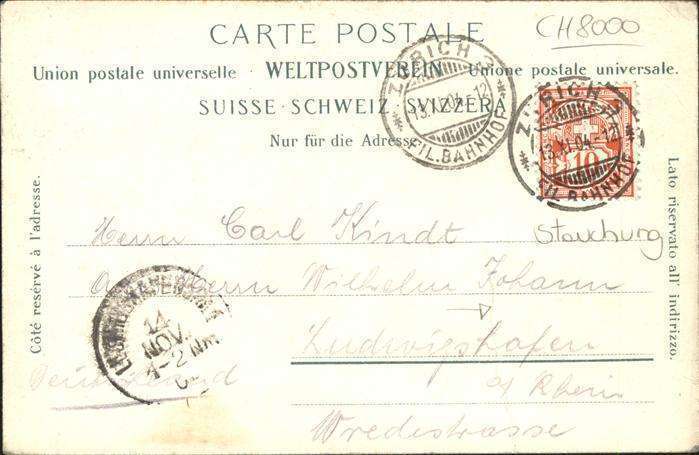 CARTE POSTALE
CH8000
Union postale universelle · WELTPOSTVEREIN · Unione postale universale.
SUISSE · SCHWEIZ · SVIZZERA
Nur für die Adresse
ZÜRICH
13.XI.04.-12
FIL.BAHNHOF
ZÜRICH
13.XI.04.-12
FIL.BAHNHOF
10
Côté reservé à l'adresse.
Lato riservato all' indirizzo.
Herrn Carl Kindt
Starburg
Wilhelm Johann
Ludwigshafen
a/ Rhein
Wredestrasse
Deutschland
14
NOV.
1-2 Nm